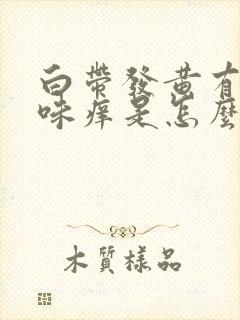 白帶發黃有
味痒是怎麽
木質樣品